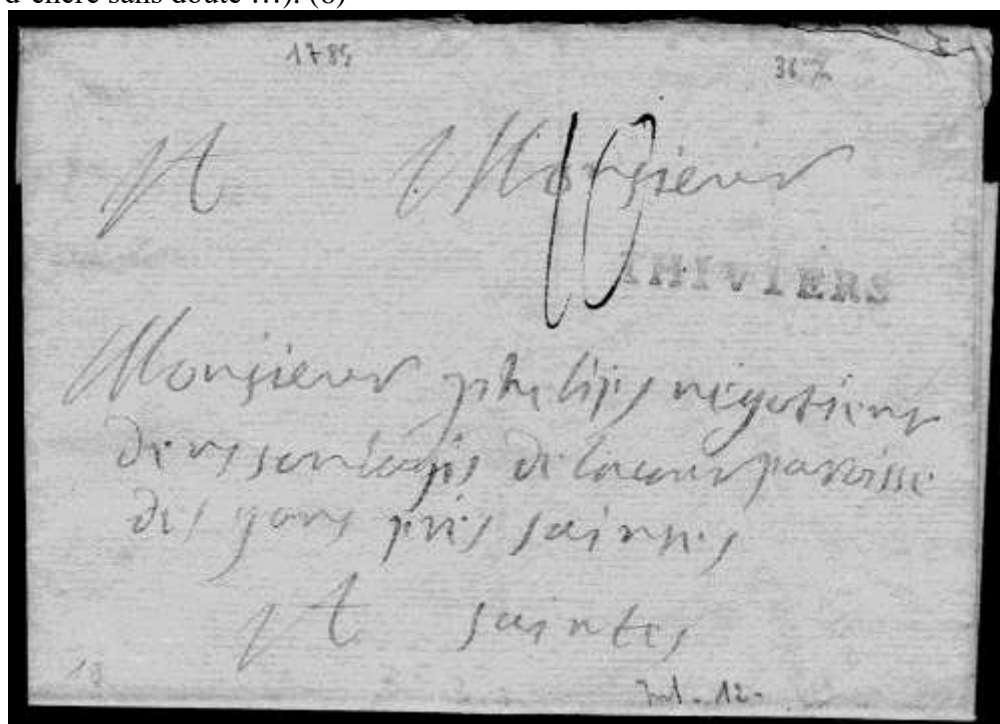 d'encre sans doute …). (6)
1785
36
A Monsieur
10
THIVIERS
Monsieur phelips négotient
de la cour paroisse
des gons près saintes
A saintes
18
Ind. 12-